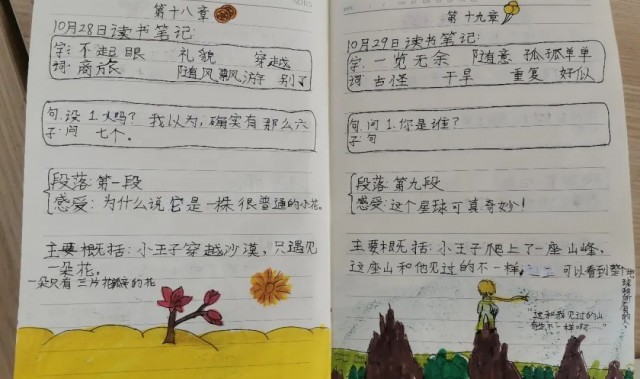 第十八章
10月28日读书笔记:
字: 不起眼 礼貌 穿越
词: 商旅 随风飘游 别了
句 设 1.人吗? 我以为,确实有那么六
子: 问 七个。
段落: 第一段
感爱: 为什么说它是一株很普通的小花。
主要概括: 小王子穿越沙漠,只遇见
一朵花。
一朵只有三片花瓣的花
第十九章
10月29日读书笔记:
字: 一览无余 随意 孤孤单单
词: 古怪 干旱 重复 好似
句: 问 1.你是谁?
子: 句
段落: 第九段
感爱: 这个星球可真奇妙!
主要概括: 小王子爬上了一座山峰,
这座山和他见过的不一样。可以看到整个
地球和所有的人。
"这和我见过的山
不一样啊"